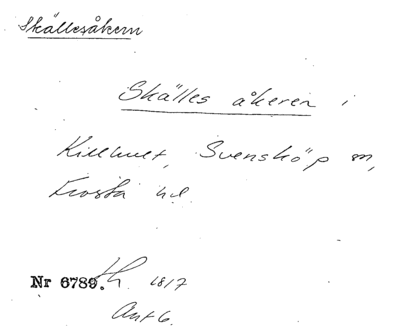 Skällesåkern
Skälles åkeren i
Killhult, Svensköp sn,
Frosta hd.
Nr 6789. th. 1817
Akt 6.